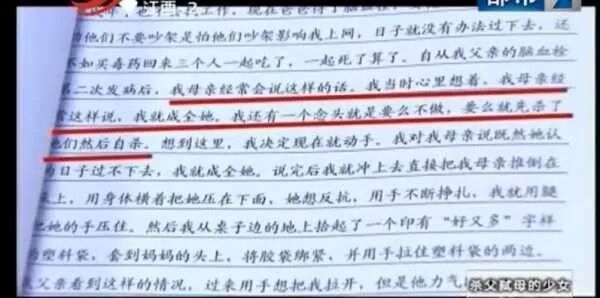 江西·2
都市
动他们不要吵架是怕他们吵架影响我上网，日子就没有办法过下去，还
不如买毒药回来三个人一起吃了，一起死了算了。自从我父亲的脑血栓
第二次发病后，我母亲经常会说这样的话。我当时心里想着，我母亲经
常这样说，我就成全她。我还有一个念头就是要么不做，要么就先杀了
他们然后自杀。想到这里，我决定现在就动手。我对我母亲说既然她认
为日子过不下去，我就成全她。说完后我就冲上去直接把我母亲推倒在
上，用身体横着把她压在下面，她想反抗，用手不断挣扎，我就用腿
把她的手压住。然后我从桌子边的地上拾起了一个印有“好又多”字样
的塑料袋，套到妈妈的头上，将胶袋绑紧，并用手拉住塑料袋的两边。
父亲看到这样的情况，过来用手想把我拉开，但是他力气
杀父弑母的少女